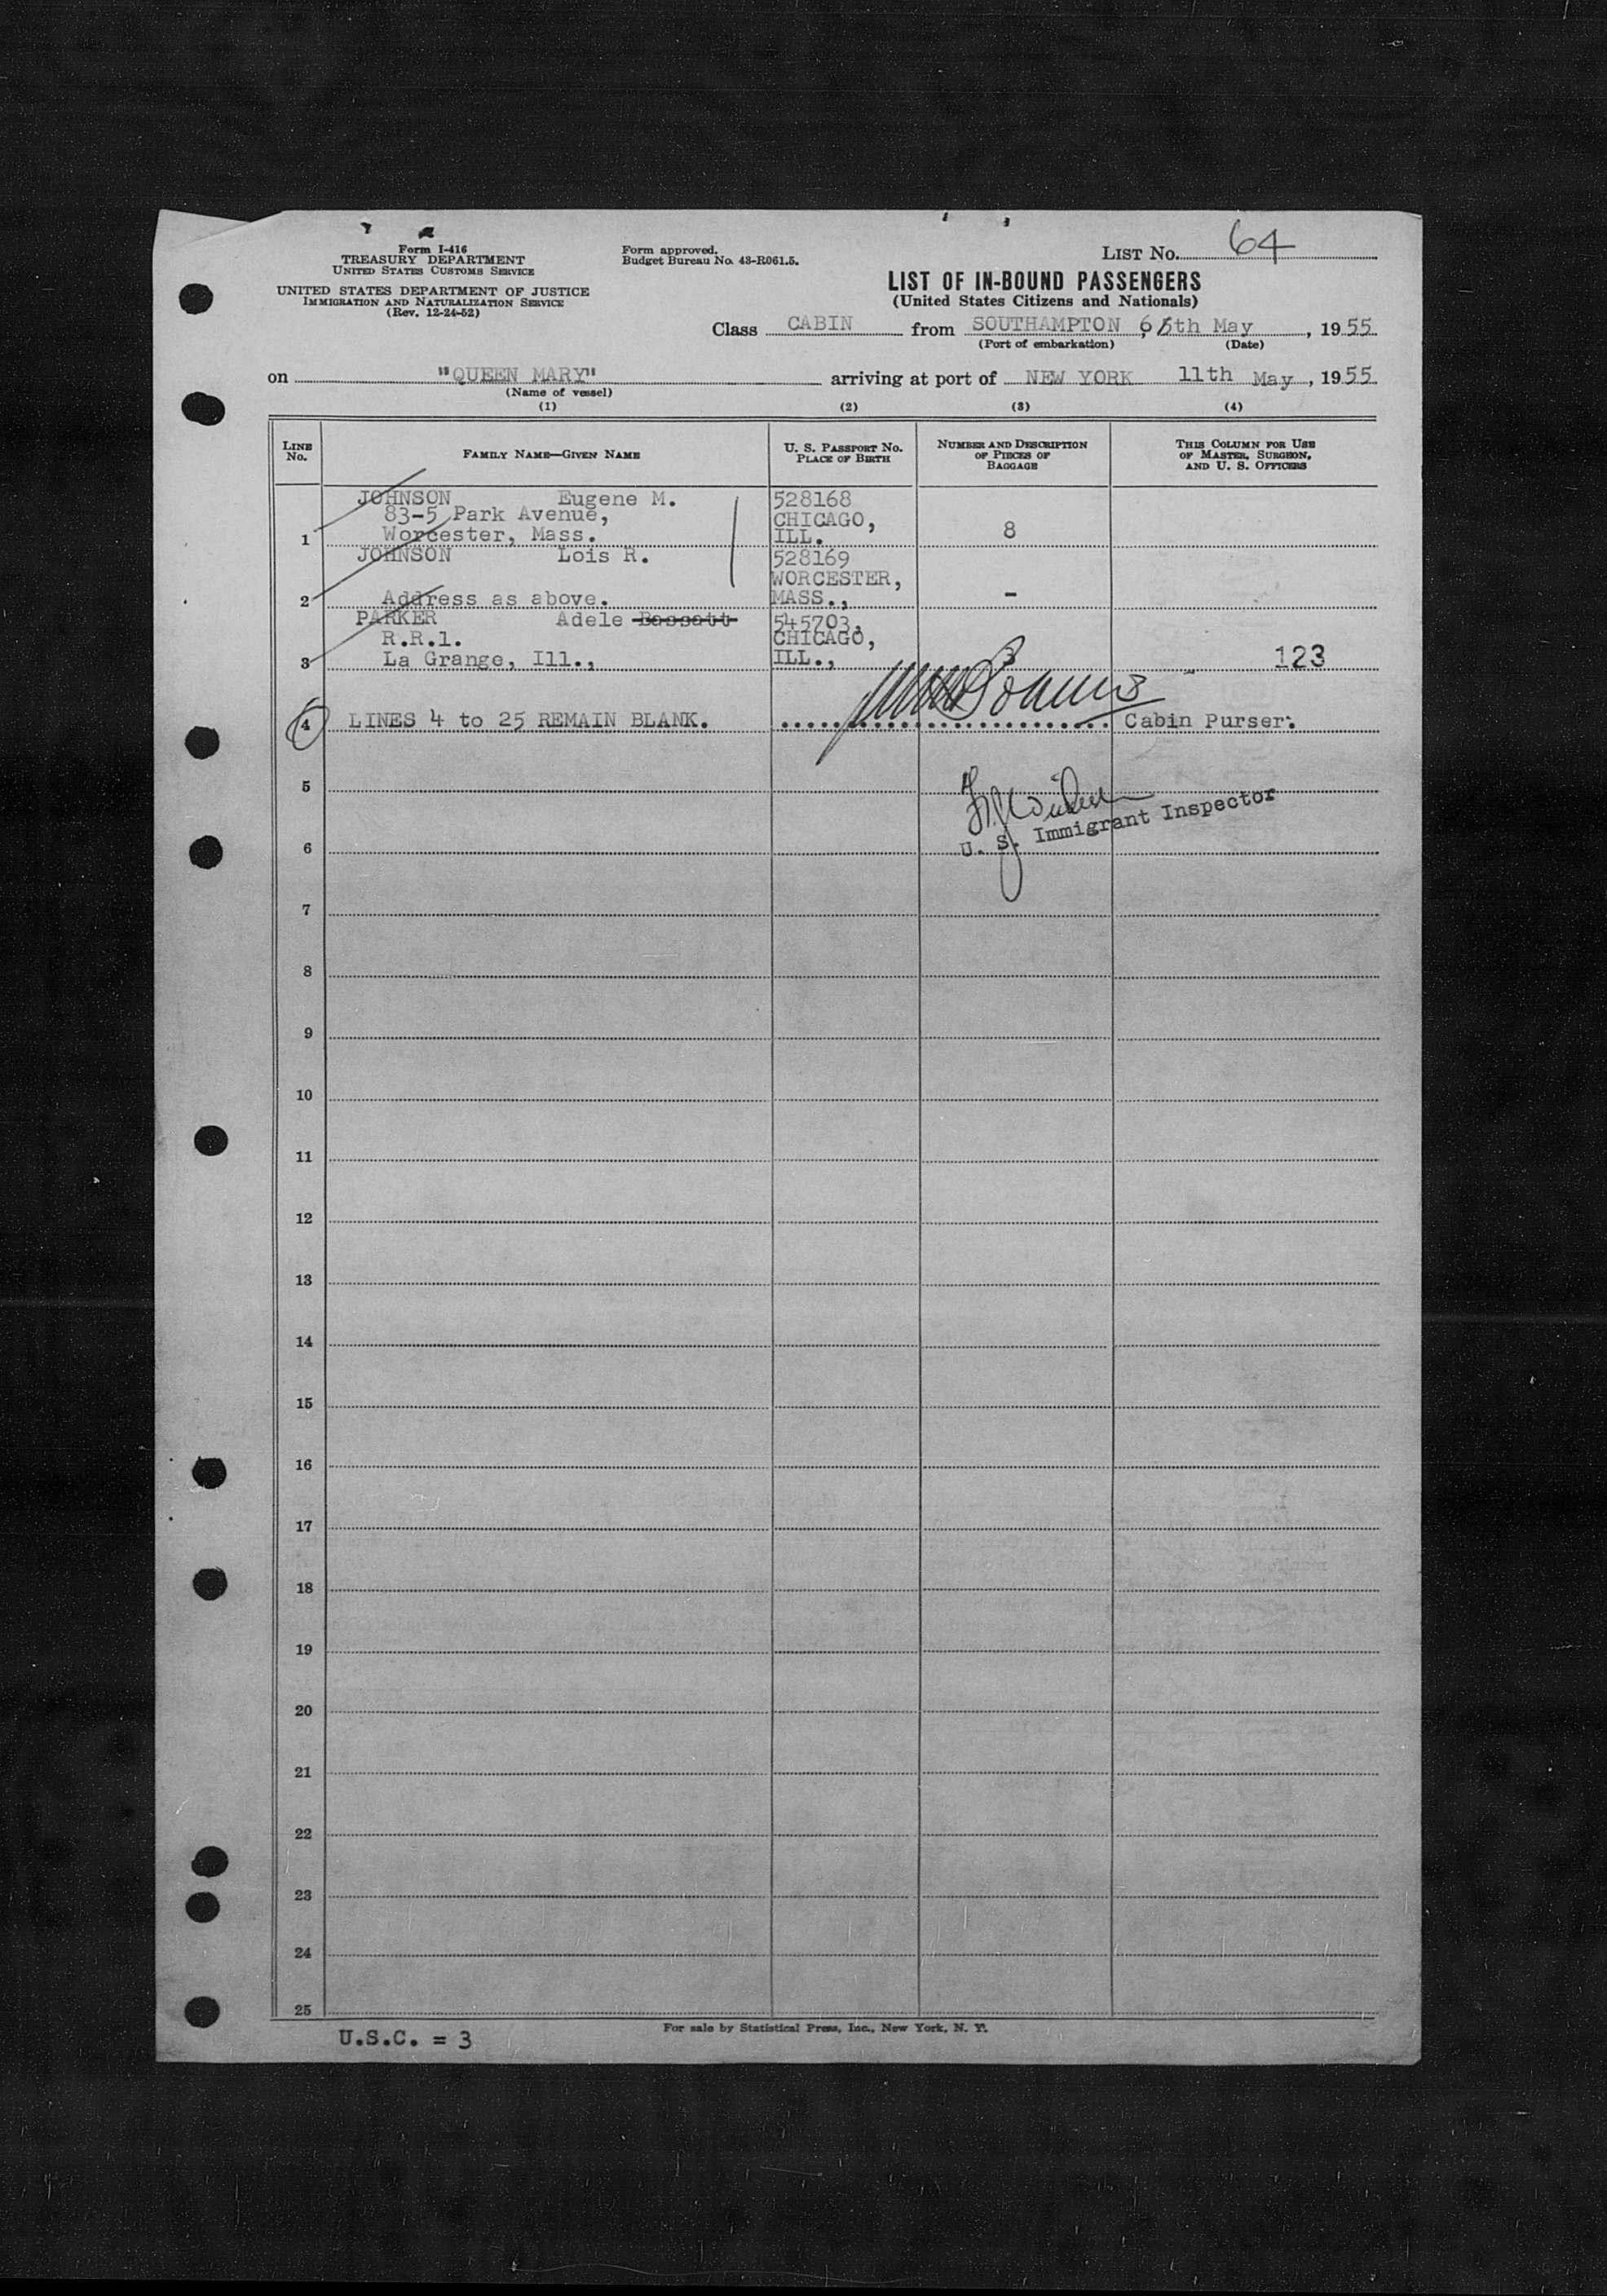 Form I-416
TREASURY DEPARTMENT
UNITED STATES CUSTOMS SERVICE
UNITED STATES DEPARTMENT OF JUSTICE
IMMIGRATION AND NATURALIZATION SERVICE
(Rev. 12-24-52)
Form approved.
Budget Bureau No. 43-R061.5.
LIST NO. 64
LIST OF IN-BOUND PASSENGERS
(United States Citizens and Nationals)
Class CABIN from SOUTHAMPTON, 6 5th May, 1955
(Port of embarkation) (Date)
on "QUEEN MARY" arriving at port of NEW YORK 11th May, 1955
(Name of vessel)
(1) (2) (3) (4)
LINE No.
FAMILY NAME—GIVEN NAME
U. S. PASSPORT NO.
PLACE OF BIRTH
NUMBER AND DESCRIPTION
OF PIECES OF
BAGGAGE
THIS COLUMN FOR USE
OF MASTER, SURGEON,
AND U. S. OFFICERS
JOHNSON Eugene M. 528168
83-5 Park Avenue, CHICAGO,
1 Worcester, Mass. ILL. 8
JOHNSON Lois R. 528169
WORCESTER,
2 Address as above. MASS., -
PARKER Adele Bassett 545703,
R.R.1. CHICAGO,
3 La Grange, Ill., ILL., 3 123
4 LINES 4 to 25 REMAIN BLANK. Cabin Purser.
5
U. S. Immigrant Inspector
6
7
8
9
10
11
12
13
14
15
16
17
18
19
20
21
22
23
24
25
For sale by Statistical Press, Inc., New York, N. Y.
U.S.C. = 3